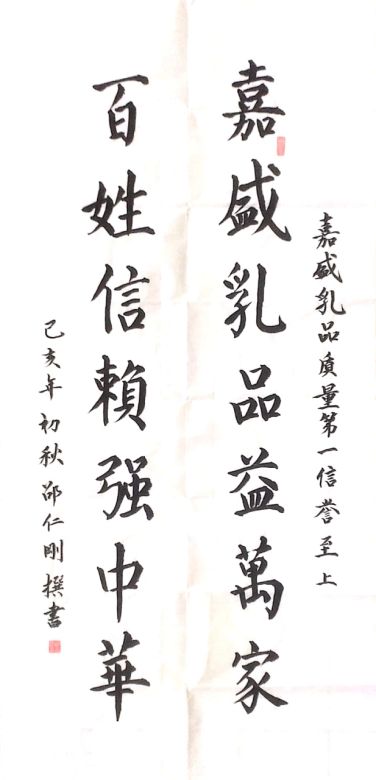 嘉盛乳品质量第一信誉至上
嘉盛乳品益萬家
百姓信赖强中華
己亥年初秋邵仁刚撰書